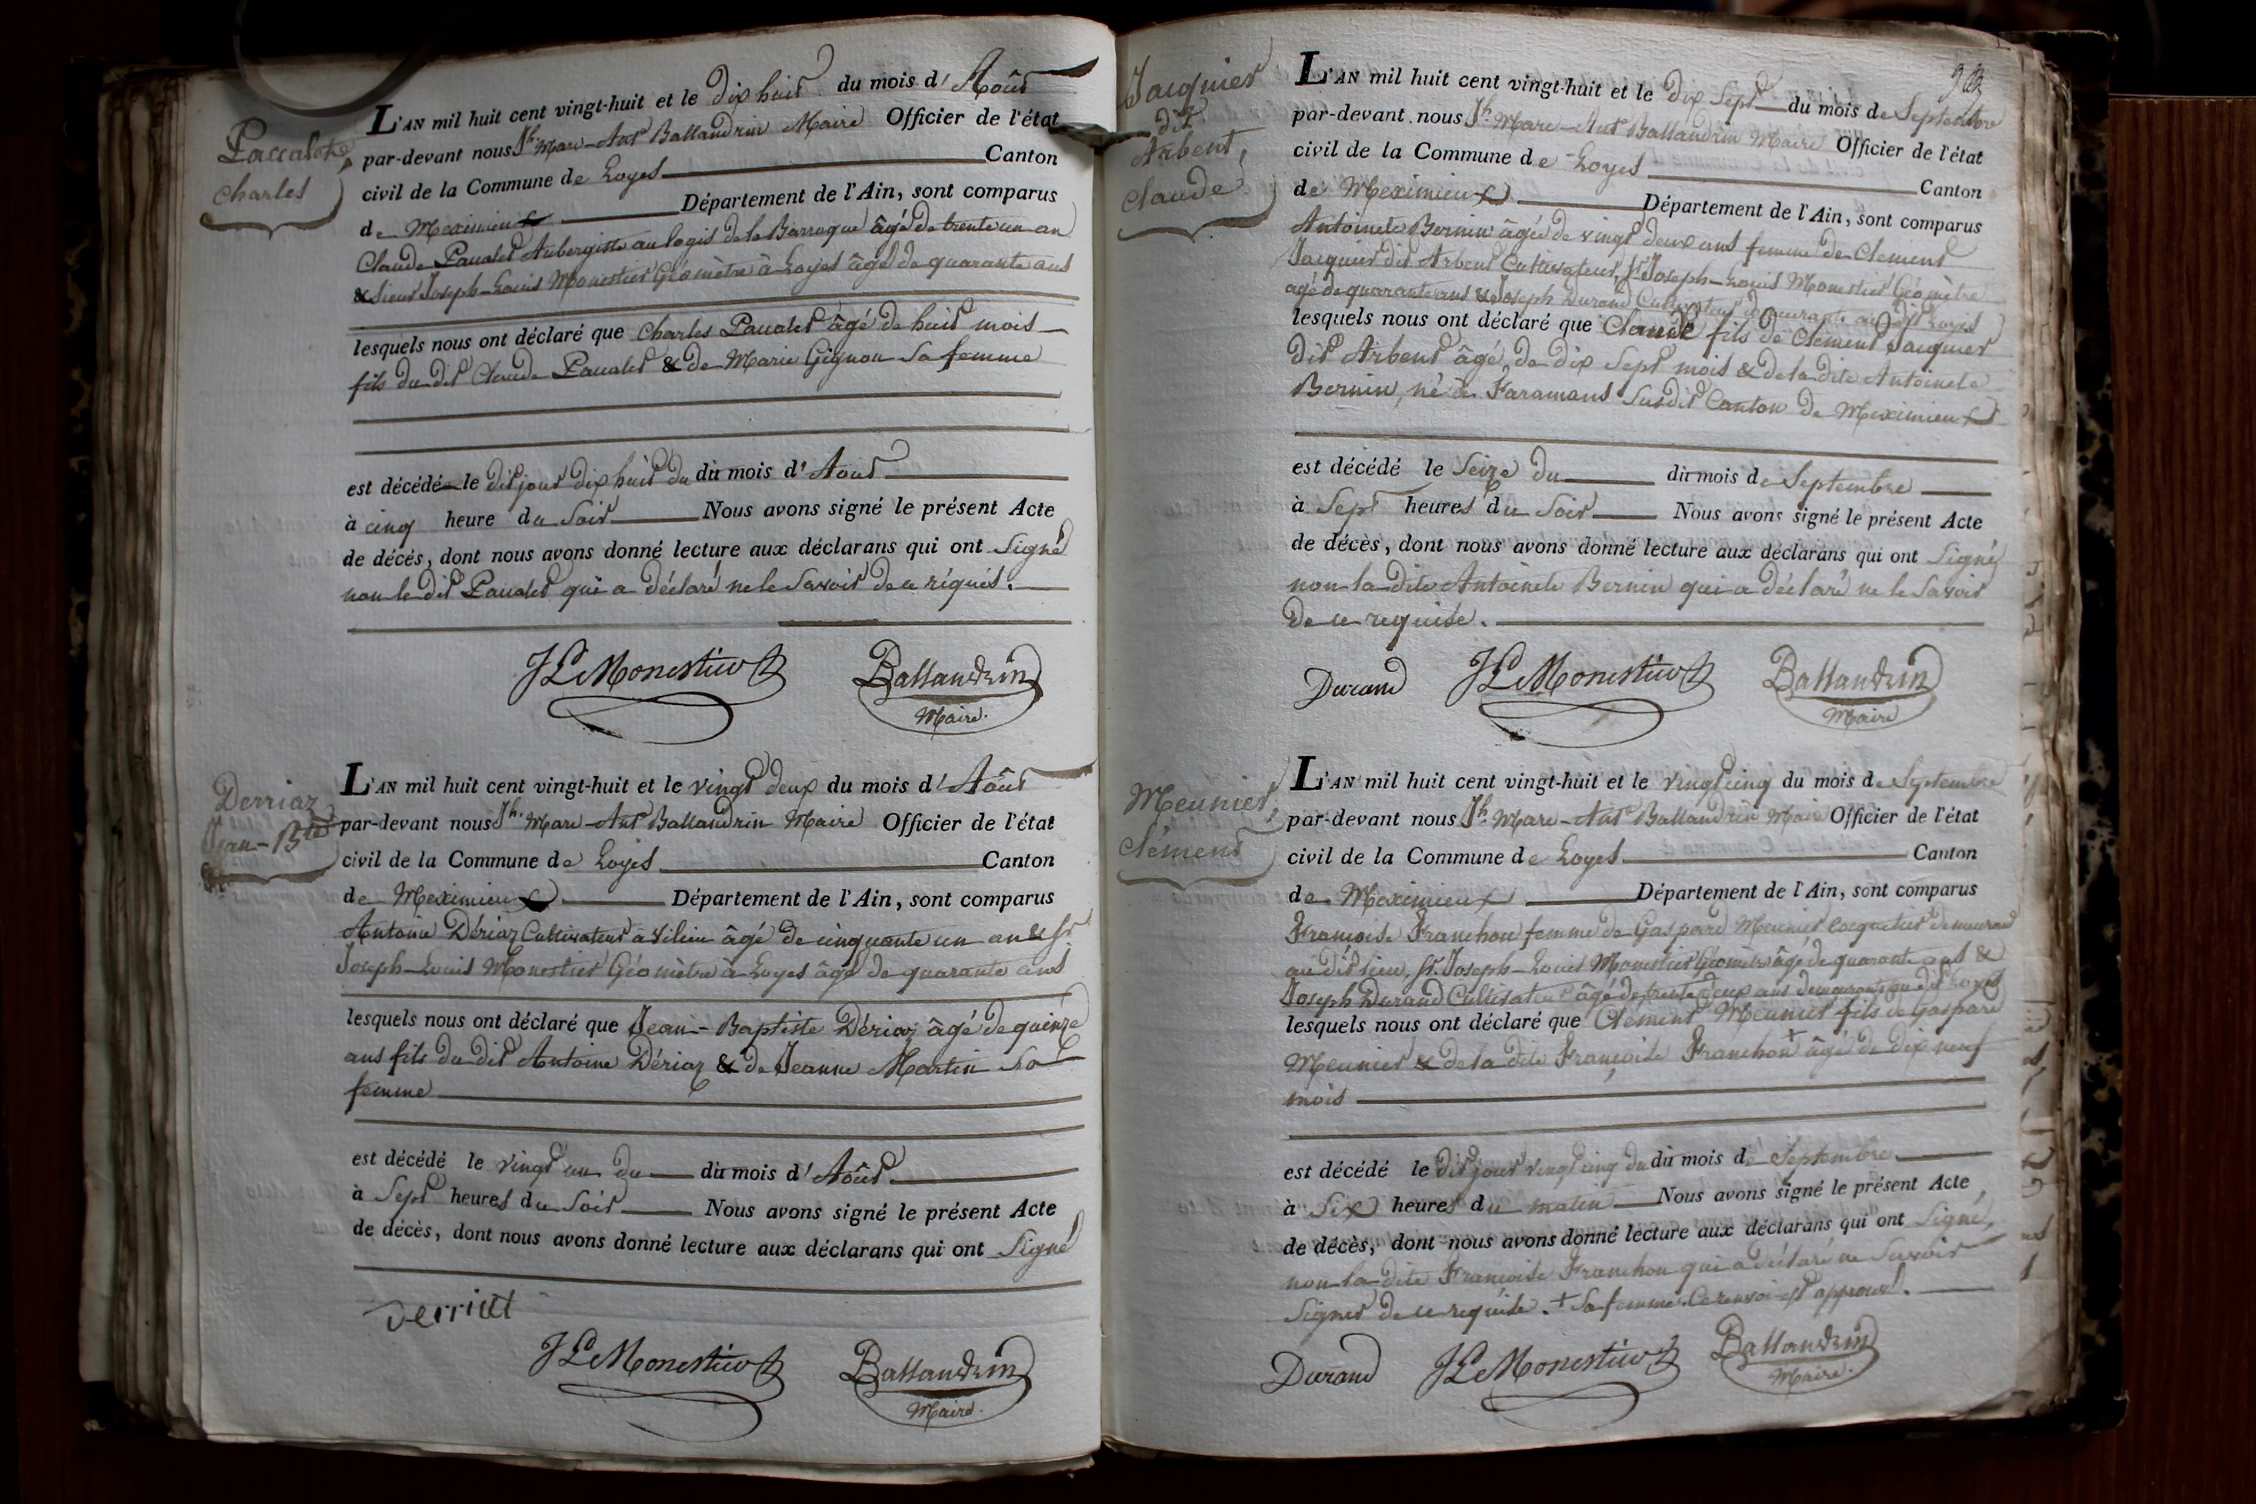 Paccalet,
Charles
L'AN mil huit cent vingt-huit et le dix huit du mois d'Août
par-devant nous Jh Marc-Ant Ballandrin Maire Officier de l'état
civil de la Commune de Loyes Canton
de Meximieux Département de l'Ain, sont comparus
Claude Paccalet Aubergiste au logis de la Barraque âgé de trente un an
& Sieur Joseph-Louis Monestier Géomètre à Loyes âgé de quarante ans
lesquels nous ont déclaré que Charles Paccalet âgé de huit mois
fils du dit Claude Paccalet & de Marie Gignou sa femme
est décédé le dit jour dix huit du dit mois d'Aout
à cinq heure du Soir Nous avons signé le présent Acte
de décès, dont nous avons donné lecture aux déclarans qui ont Signé
non le dit Paccalet qui a déclaré ne le Savoir de ce réquis.
JLe Monestier Ballandrin
Maire.
Derriaz
Jean-Bte
L'AN mil huit cent vingt-huit et le vingt deux du mois d'Août
par-devant nous Jh Marc-Ant Ballandrin Maire Officier de l'état
civil de la Commune de Loyes Canton
de Meximieux Département de l'Ain, sont comparus
Antoine Dériaz Cultivateur à Vilieu âgé de cinquante un an & Sr
Joseph-Louis Monestier Géomètre à Loyes âgé de quarante ans
lesquels nous ont déclaré que Jean-Baptiste Dériaz âgé de quinze
ans fils du dit Antoine Dériaz & de Jeanne Martin sa
femme
est décédé le vingt un du dit mois d'Août.
à Sept heures du Soir Nous avons signé le présent Acte
de décès, dont nous avons donné lecture aux déclarans qui ont Signé
Derriet
JLe Monestier Ballandrin
Maire.
Jacquier
dit
Arbent,
Claude
L'AN mil huit cent vingt-huit et le dix Sept du mois de Septembre
par-devant nous Jh Marc-Ant Ballandrin Maire Officier de l'état
civil de la Commune de Loyes Canton
de Meximieux Département de l'Ain, sont comparus
Antoinete Bernin âgée de vingt deux ans femme de Clement
Jacquier dit Arbent Cultivateur, Sr Joseph-Louis Monestier Géomètre
agé de quarante ans & Joseph Durand Cultivateur demeurants audit Loyes
lesquels nous ont déclaré que Claude fils de Clément Jacquier
dit Arbent âgé de dix Sept mois & de la dite Antoinete
Bernin, né à Faramans Susdit Canton de Meximieux
est décédé le Seize du dit mois de Septembre
à Sept heures du Soir Nous avons signé le présent Acte
de décès, dont nous avons donné lecture aux déclarans qui ont Signé
non la dite Antoinete Bernin qui a déclaré ne le Savoir
de ce requise.
Durand JLe Monestier Ballandrin
Maire
Meunier,
Clément
L'AN mil huit cent vingt-huit et le vingt cinq du mois de Septembre
par-devant nous Jh Marc-Ant Ballandrin Maire Officier de l'état
civil de la Commune de Loyes Canton
de Meximieux Département de l'Ain, sont comparus
Françoise Franchon femme de Gaspard Meunier coquetier demeurand
au dit lieu, Sr. Joseph-Louis Monestier Géomètre âgé de quarante ans &
Joseph Durand Cultivateur âgé de trente deux ans demeurants au dit Loyes
lesquels nous ont déclaré que Clément Meunier fils de Gaspard
Meunier & de la dite Françoise Franchon + âgé de dix neuf
mois
est décédé le dit jour vingt cinq du dit mois de Septembre
à Six heures du matin Nous avons signé le présent Acte
de décès, dont nous avons donné lecture aux déclarans qui ont Signé,
non la dite Françoise Franchon qui a déclaré ne Savoir
Signer de ce requise. + Sa femme. Ce renvoi est approuvé.
Durand JLe Monestier Ballandrin
Maire.